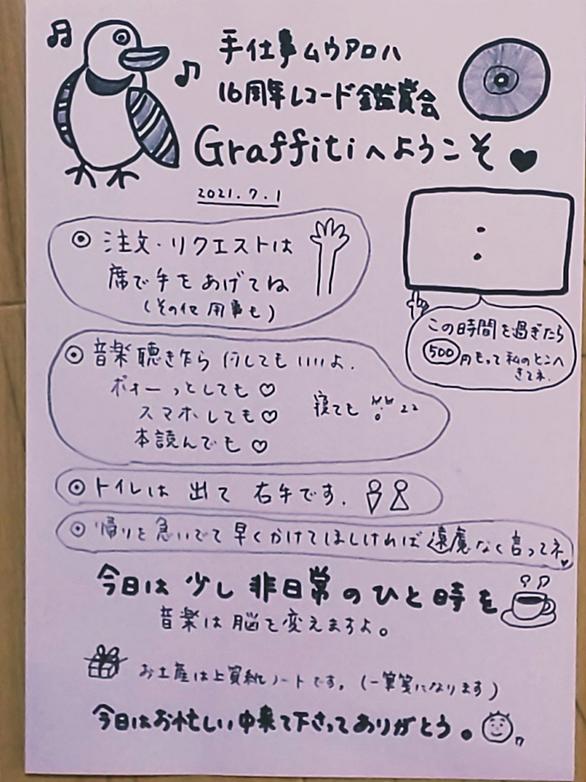 手仕事ムウアロハ
16周年レコード鑑賞会
Graffitiへようこそ♥
2021.7.1
◉ 注文・リクエストは
席で手をあげてね
(その他 用事も)
:
この時間を過ぎたら
500円もって私のとこへ
きてネ.
◉ 音楽聴き乍ら 何しても いいよ.
ボォーっとしても ♡
スマホしても ♡
寝ても
本読んでも ♡
◉ トイレは 出て 右手です.
◉ 帰りを急いでて早くかけてほしければ遠慮なく言ってネ♥
今日は 少し 非日常のひと時を
音楽は脳を変えますよ。
お土産は上質紙ノートです。(一筆箋になります)
今日はお忙しい中来て下さってありがとう。